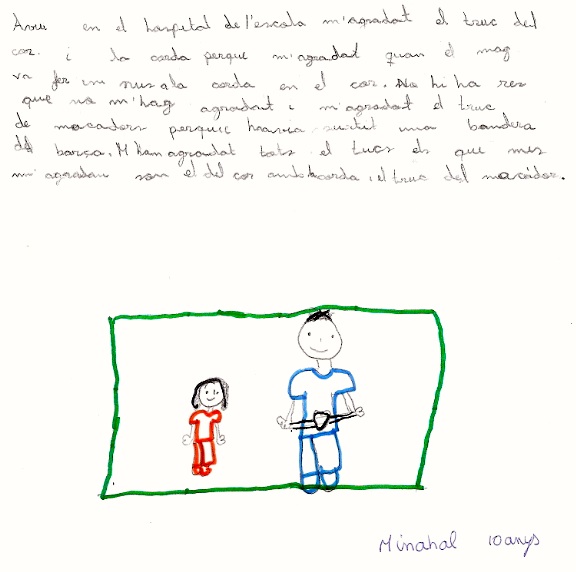 Avui en el hospital de l'escola m'agradat el truc del
cor. i la corda perque m'agradat quan el mag
va fer un nus a la corda en el cor. No hi ha res
que no m'hag agradat i m'agradat el truc
de mocadors perquè havia surtit una bandera
del barça. M'han agradat tots el trucs els que mes
m'agradan son el del cor amb la corda i el truc del mocador.
Minahal 10 anys